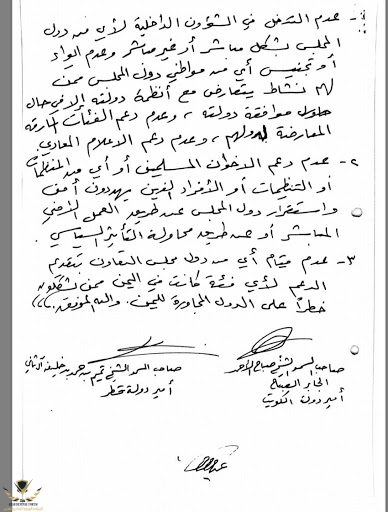 ١- عدم التدخل في الشؤون الداخلية لأي من دول
المجلس بشكل مباشر أو غير مباشر وعدم ايواء
أو تجنيس أي من مواطني دول المجلس ممن
لهم نشاط يتعارض مع أنظمة دولته إلا في حال
موافقة دولته ، وعدم دعم الفئات المارقة
المعارضة لدولهم ، وعدم دعم الاعلام المعادي.
٢- عدم دعم الاخوان المسلمين أو أي من المنظمات
أو التنظيمات أو الأفراد الذين يهددون أمن
واستقرار دول المجلس عن طريق العمل الأمني
المباشر أو عن طريق محاولة التأثير السياسي.
٣- عدم قيام أي من دول مجلس التعاون بتقديم
الدعم لأي فئة كانت في اليمن ممن يشكلون
خطراً على الدول المجاورة لليمن. والله الموفق،،،
صاحب السمو الشيخ صباح الأحمد
الجابر الصباح
أمير دولة الكويت
صاحب السمو الشيخ تميم بن حمد بن خليفة آل ثاني
أمير دولة قطر